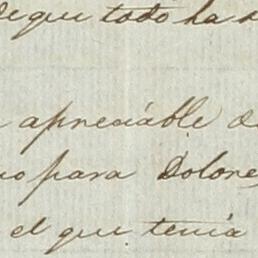 que todo ha
apreciable
para Dolores
el que tenia